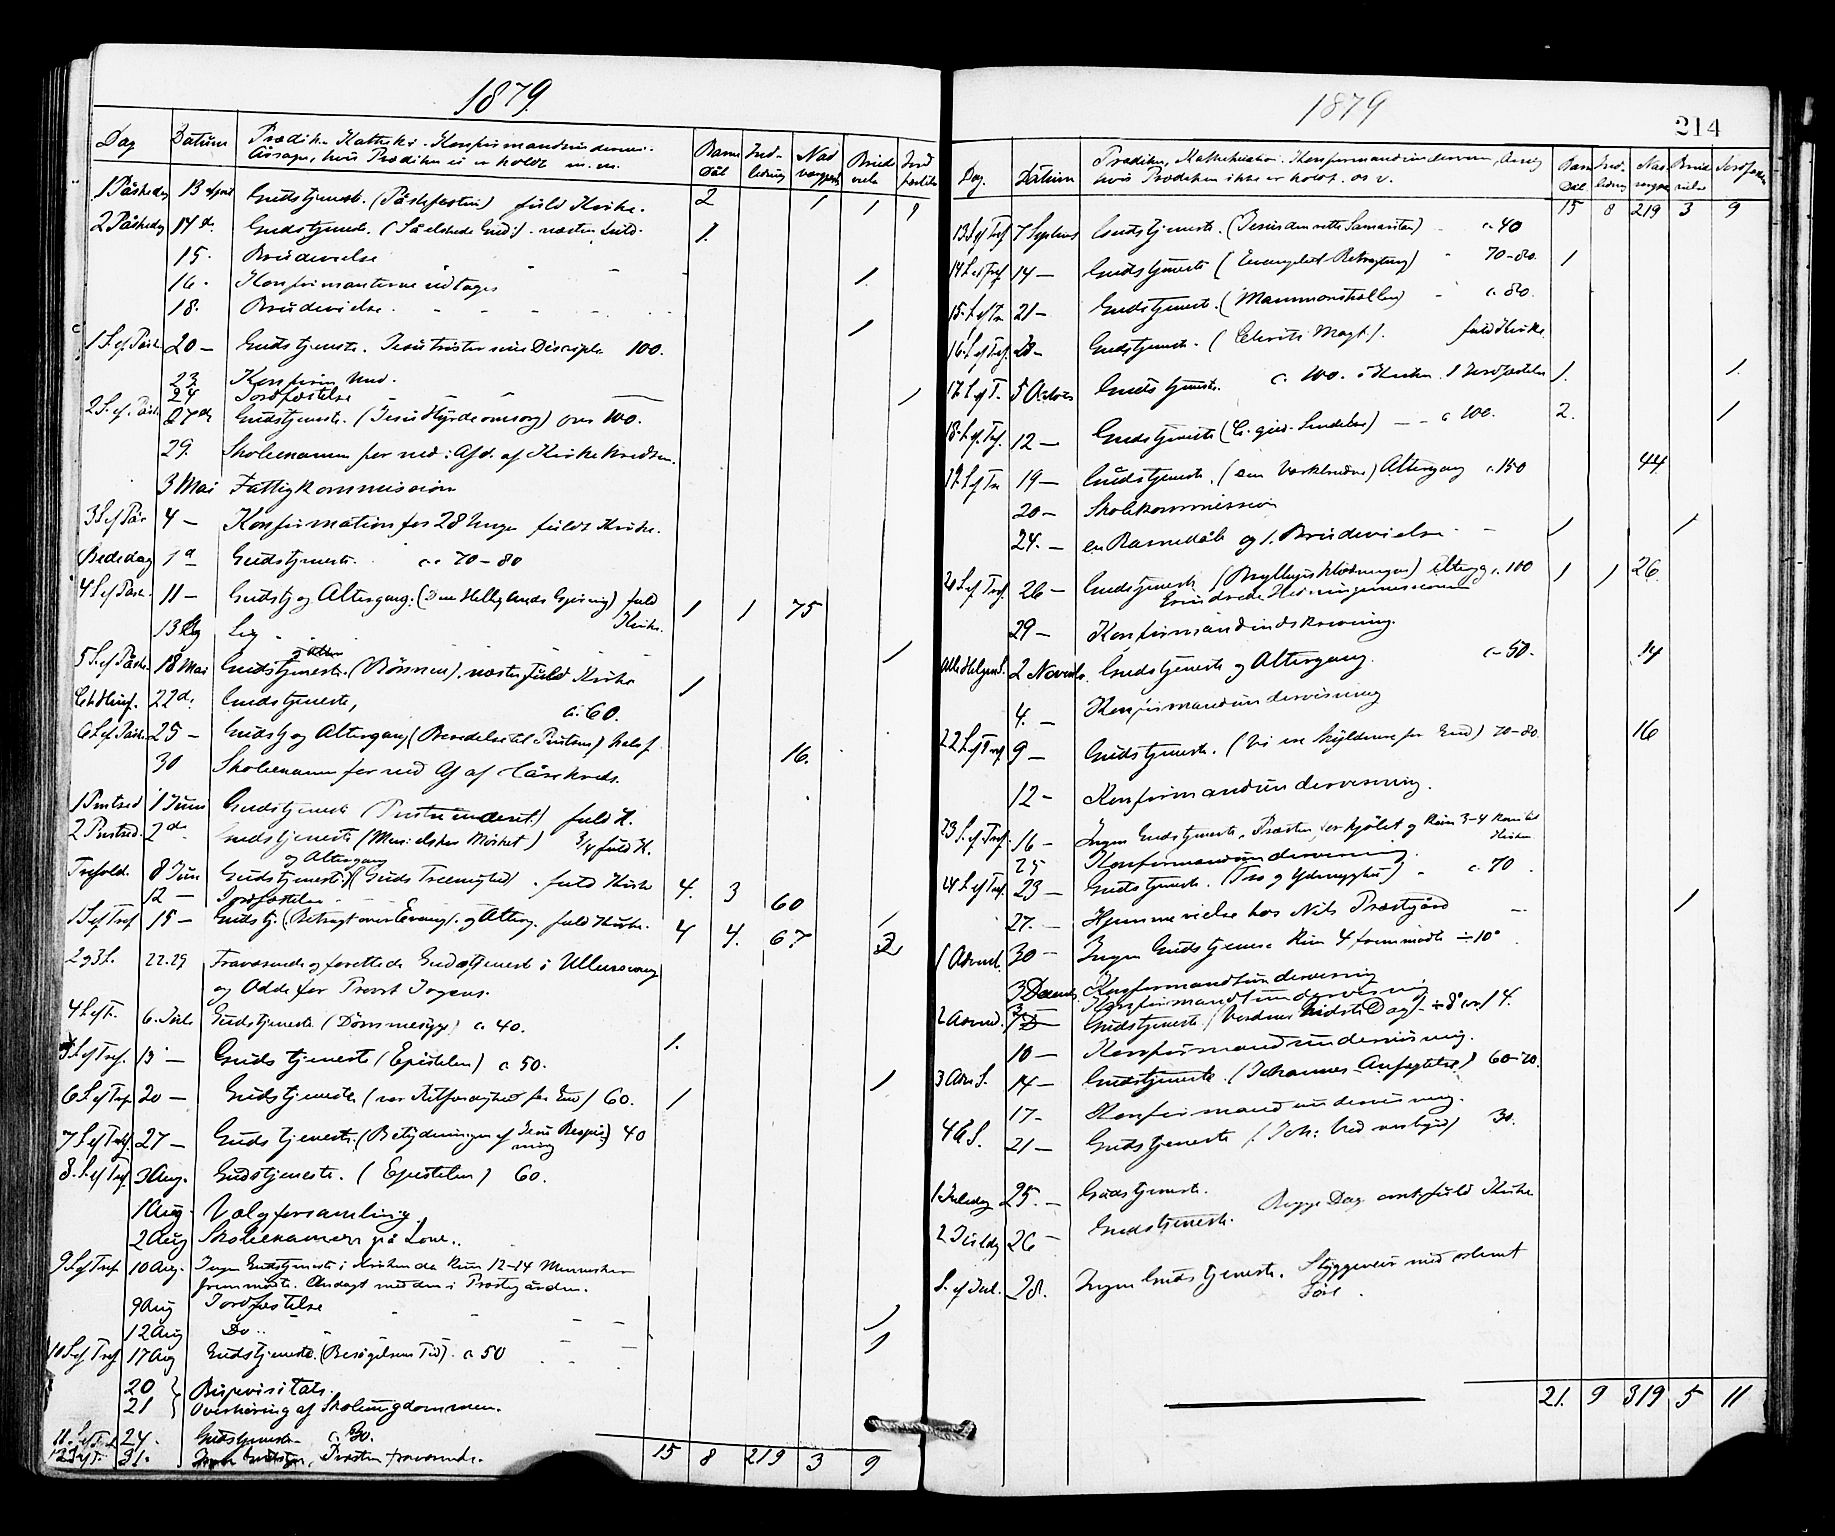 1879.
Dag Datum Prædiken Katheki. Konfirmandundervisn.
Årsagen, hvis Prædiken ei er holdt m. m. Barne Dåb Ind- ledning Nad vergjest Brude vielse Jord fæstelse
1 Påskedag 13 April Gudstjeneste. (Påskefesten) fuld Kirke. 2 1 1 1
2 Påskedag 14 d. Gudstjeneste. næsten fuld. 1.
15. Brudevielse
16. Konfirmanterne udtages 1.
18. Brudevielse.
1 S. ef Påske 20 – Gudstjeneste. Jesus trøster sine Disciple 100. 1
23 Konfirm. Und.
24 Jordfæstelse 1
2 S. ef. Påske 27 d. Gudstjeneste. (Jesu Hyrdeomsorg) over 100.
29. Skoleexamen for ned: Afd. af Kirkekredsen.
3 Mai Fattigkommission
3 S ef Pås 4 – Konfirmation for 28 Unge fuldt Kirke.
Bededag Gudstjeneste. c. 70–80
4 S ef Påske 11 – Gudstj og Altergang. (Den Helligånds Gjerning) fuld Kirke. 1 1 75
13
5 S. ef Påske. 18 Mai Gudstjeneste. og Alter (Bønnen). næsten fuld Kirke 1
22 d. Gudstjeneste, c. 60.
6 S. ef Påske. 25 – Gudstj og Altergang (Beredelse til Pintsen) halvf. 16.
30 Skoleexamen for ned Af af Håre Kreds.
1 Pintsed 1 Juni Gudstjeneste fuld K.
2 Pintsed. 2 d. Gudstjeneste (Men. elsker Mørket) 3/4 fuld K.
Trefold. 8 Jun Gudstjeneste og Altergang (Guds Treenighed). fuld Kirke 4. 3 60
12 – Jordfæstelse
1 S ef Tref 15 – Gudstj. (Betragt over Evang). og Alterg. fuld Kirke. 4 4. 67 2
2 og 3 S. 22. 29 Fraværende og forettede Gudstjeneste i Ullensvang
og Odde for Provst Jogens.
4 S ef Tr. 6. Juli Gudstjeneste (Dømmesyge) c. 40.
5 S ef Tref. 13 – Gudstjeneste (Epistelen) c 50. 1.
6 S ef Tref 20 – Gudstjeneste (vor Retfærdighed for Gud) 60. 1 1
7 S ef Tref. 27 – Gudstjeneste. (Betydningen af Jesu Bespisning) 40
8. S. ef Tref. 3 Aug. Gudstjeneste. (Epistelen) 60.
1 Aug. Valgforsamling.
2 Aug Skoleexamen på Lone.
9 S ef Tref 10 Aug. Ingen Gudstjeneste i Kirken da Kun 12–14 Mennesker
fremmødte. Andagt med dem i Præstegården.
9 Aug Jordfæstelse 1
12 Aug Do. 1
10 S. ef Tref 17 Aug Gudstjeneste. (Besøgelsens Tid). c 50
20 } Bispevisitats.
21 } Overhøring af Skoleungdommen.
11. S ef Tref 24. Gudstjeneste c. 30.
12 S ef T. 31. Præsten fraværende.
15 8 219 3 9
1879
214
Dag. Datum Prædiken, Kathekisation. Konfirmandundervisn, Årsag
hvis Prædiken ikke er holdt. o s v. Barne Dåb Ind- ledning Nad vergjest Brude vielse Jordfæstelse
15 8 219 3 9
13 S ef Tref 7 Septemb Gudstjeneste. (Jesus den rette Samaritan) c. 40
14 S ef Tref 14 – Gudstjeneste 70–80. 1
15. S. ef Tr 21 – Gudstjeneste. c. 80.
16. S. ef Tref. 28 – Gudstjeneste. (Christi Magt). fuld Kirke.
17. S. ef T. 5 Octobr Gudstjeneste. c. 100. i Kirken. 1 Jordfæstelse 1. 1.
18. S. ef. Tref. 12 – Gudstjeneste c 100. 2. 1
19. S ef Tr 19 – Gudstjeneste. Altergang c. 150 44
20 – Skolekommission
24. – en Barnedåb og 1. Brudevielse 1 1
20 S. ef Tref. 26 – Gudstjeneste (Bryllupsklædningen) Alterg c. 100 1 1 26
Erindrede Hedningemissionen
29 – Konfirmandindskrivning.
Alle Helgens. 2 Novemb. Gudstjeneste og Altergang. c. 50. 14
4. – Konfirmandundervisning
22 S. ef Tref 9 – Gudstjeneste. (Vi ere Skyldnere for Gud) 70–80. 16
12 – Konfirmandundervisning.
23 S. ef Tref. 16 – Ingen Gudstjeneste. Præsten forkjølet og Kun 3–4 Kom til Kirken
25 Konfirmandundervisning.
24 S. ef Tref. 23 – Gudstjeneste. (Tro og Ydmyghed) c. 70
27. – Hjemmevielse hos Nils Præstgård 1
1 Advent. 30 – Ingen Gudstjeneste Kun 4 fremmødte ÷ 10°
3 Decemb. Konfirmandtundervisning
Konfirmandtundervisning
2 Advent. 7 – Gudstjeneste (Verdens sidste Dag) 14.
10 – Konfirmandundervisning.
3 Adv S. 14 – Gudstjeneste (Johannes Anfægtelse) 60–70.
17 – Konfirmandundervisning.
4 A S. 21 – Gudstjeneste 30.
1 Juledag 25. – Gudstjeneste. Begge Dage omtr fuld Kirke
2 Juledag 26 – Gudstjeneste.
S. ef Jul. 28. Ingen Gudstjeneste. Styggeveir med slemt
Føre.
21. 9 319 5 11